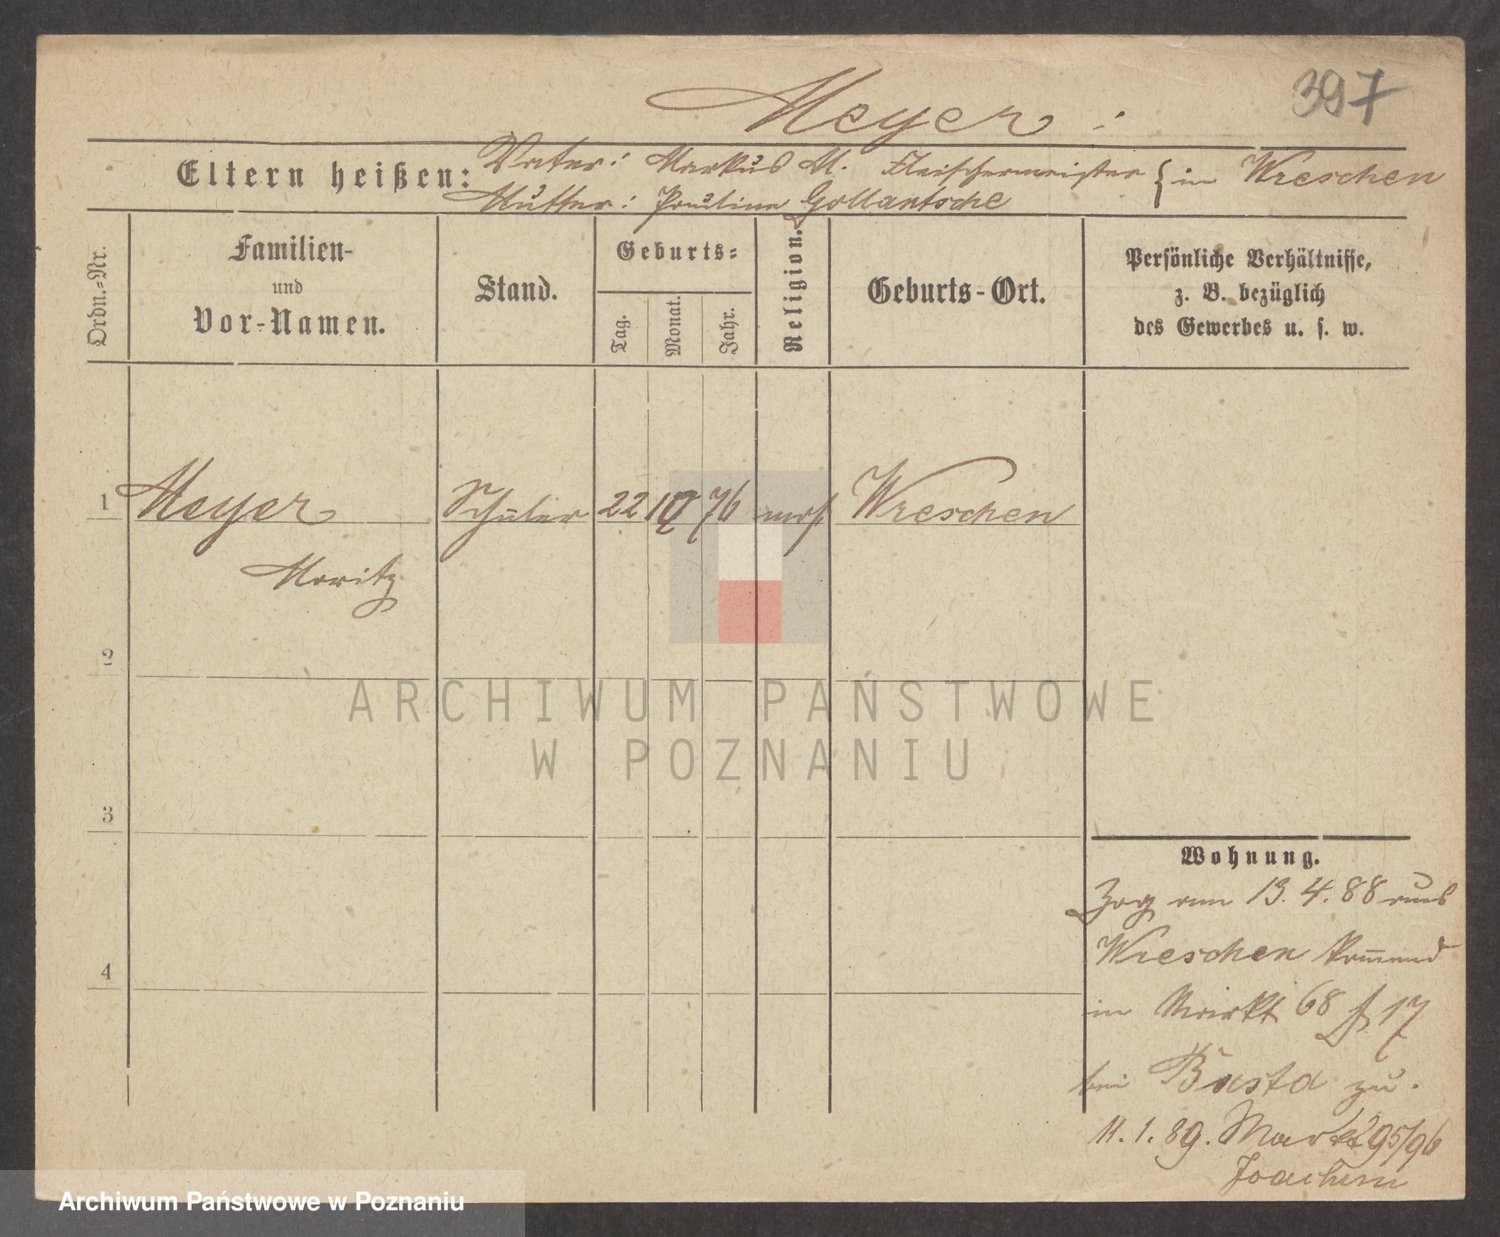 397
Meyer
Eltern heißen: Vater: Markus M. Fleischermeister { in Wreschen
Mutter: Pauline Gollantsche
Ordn.-Nr.
Familien-
und
Vor-Namen.
Stand.
Geburts-
Tag.
Monat.
Jahr.
Religion.
Geburts-Ort.
Persönliche Verhältnisse,
z. B. bezüglich
des Gewerbes u. s. w.
1 Meyer Schüler 22 10 76 mos. Wreschen
Moritz
2
ARCHIWUM PAŃSTWOWE
W POZNANIU
3
Wohnung.
Zog am 13.4.88 aus
Wreschen kommend
4
in Markt 68 17
bei zu.
11.1.89. Markt 95/96
Joachim
Archiwum Państwowe w Poznaniu